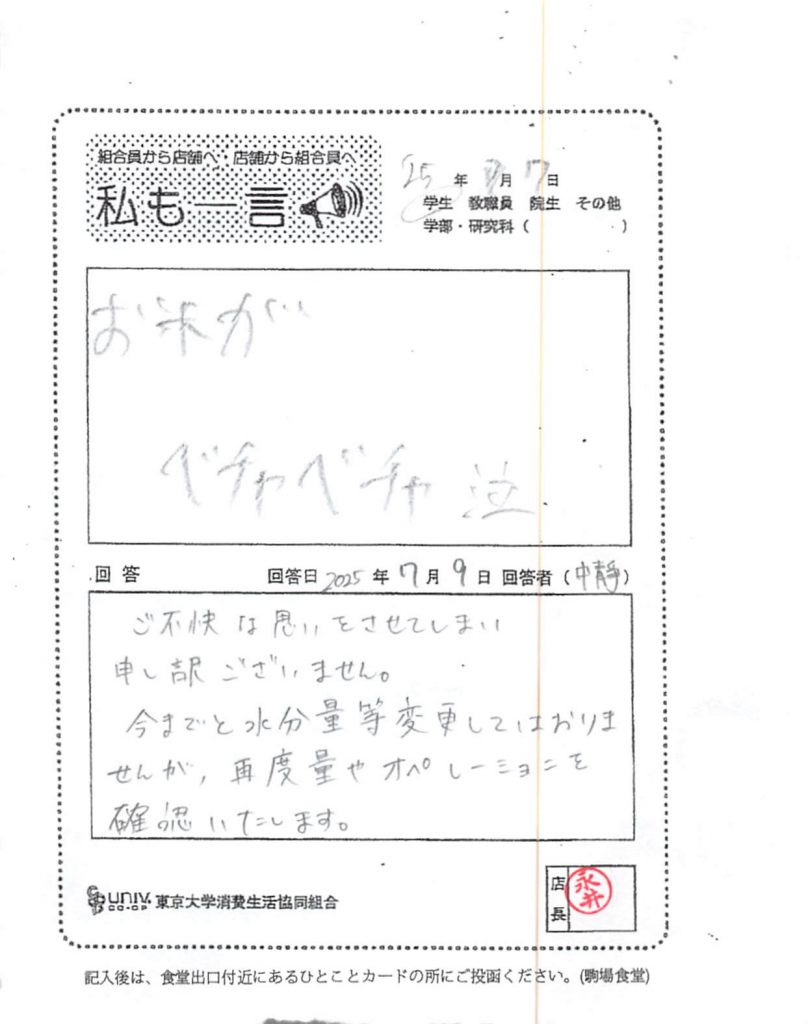 組合員から店舗へ・店舗から組合員へ
私も一言
25年 7月 7日
学生 教職員 院生 その他
学部・研究科( )
お米が
ベチャベチャ 泣
回答 回答日 2025 年 7 月 9 日 回答者 (中静)
ご不快な思いをさせてしまい
申し訳ございません。
今までと水分量等変更してはおりま
せんが、再度量やオペレーションを
確認いたします。
UNIV. CO-OP 東京大学消費生活協同組合
店長 永井
記入後は、食堂出口付近にあるひとことカードの所にご投函ください。(駒場食堂)